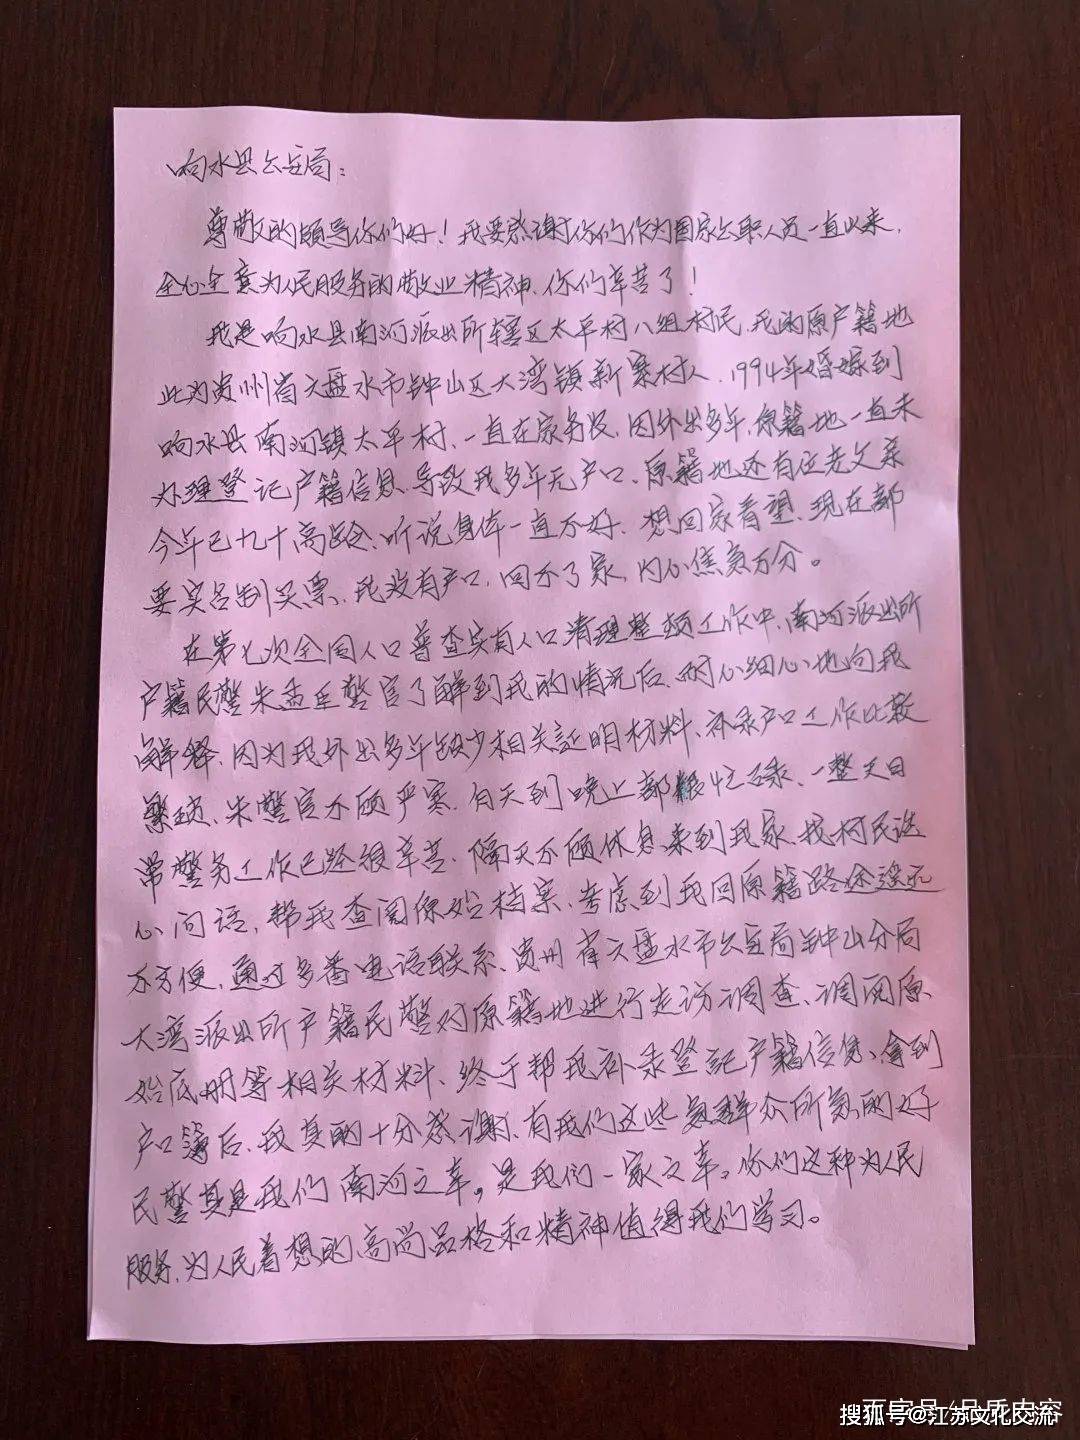 响水县公安局：
尊敬的领导你们好！我要感谢你们作为国家公职人员一直以来，
全心全意为人民服务的敬业精神、你们辛苦了！
我是响水县南河派出所辖区太平村八组村民、我的原户籍地
此为贵州省六盘水市钟山区大湾镇新寨村人、1994年婚嫁到
响水县南河镇太平村、一直在家务农、因外出多年、原籍地一直未
办理登记户籍信息、导致我多年无户口、原籍地还有位老父亲
今年已九十高龄、听说身体一直不好、想回家看望、现在都
要实名制买票、我没有户口，回不了家，内心焦急万分。
在第七次全国人口普查实有人口清理整顿工作中，南河派出所
户籍民警朱孟臣警官了解到我的情况后、耐心细心地向我
解释、因为我外出多年缺少相关証明材料、补录户口工作比较
繁琐、朱警官不顾严寒、白天到晚上都很忙碌、一整天日
常警务工作已经很辛苦、隔天不顾休息来到我家、找村民谈
心问话，帮我查阅原始档案、考虑到我回原籍路途遥远
不方便，通过多番电话联系、贵州省六盘水市公安局钟山分局
大湾派出所户籍民警对原籍地进行走访调查、调阅原
始底册等相关材料、终于帮我补录登記户籍信息、拿到
户口簿后、我真的十分感谢、有我们这些急群众所急的好
民警真是我们南河之幸。是我们一家之幸。你们这种为人民
服务、为人民着想的高尚品格和精神值得我们学习。
搜狐号@江苏文化交流